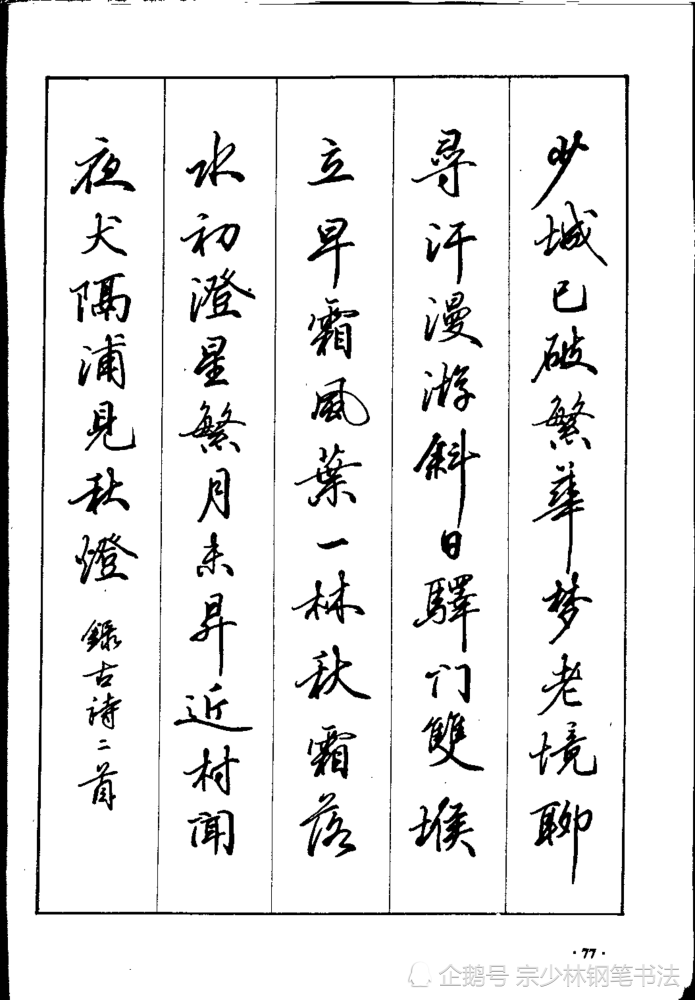 少城已破繁華梦老境聊
尋汗漫游斜日驛门雙堠
立早霜風葉一林秋霜落
水初澄星繁月未昇近村聞
夜犬隔浦見秋燈 錄古詩二首
·77·
企鹅号 宗少林钢笔书法